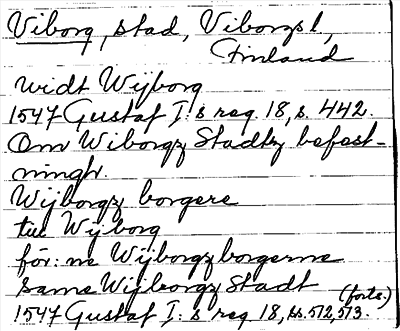 Viborg, stad, Viborgs l,
Finland
widt Wijborg
1547 Gustaf I:s reg. 18, s. 442.
Om Wiborgz Stadtz befest-
ningh.
Wijborgz borgere
till Wijborg
för:ne Wijborgz borgerne
same Wijborgz Stadt
(forts.)
1547 Gustaf I:s reg 18, ss. 512, 513.